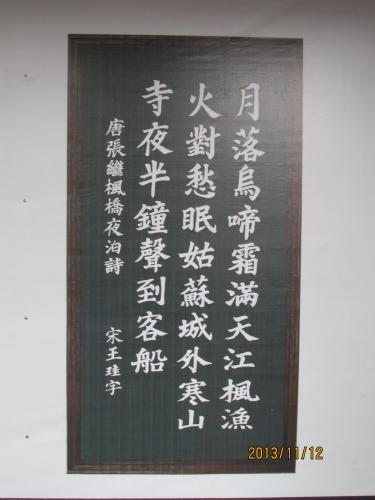 月落烏啼霜滿天江楓漁
火對愁眠姑蘇城外寒山
寺夜半鐘聲到客船
唐張繼楓橋夜泊詩
宋王珪字
2013/11/12